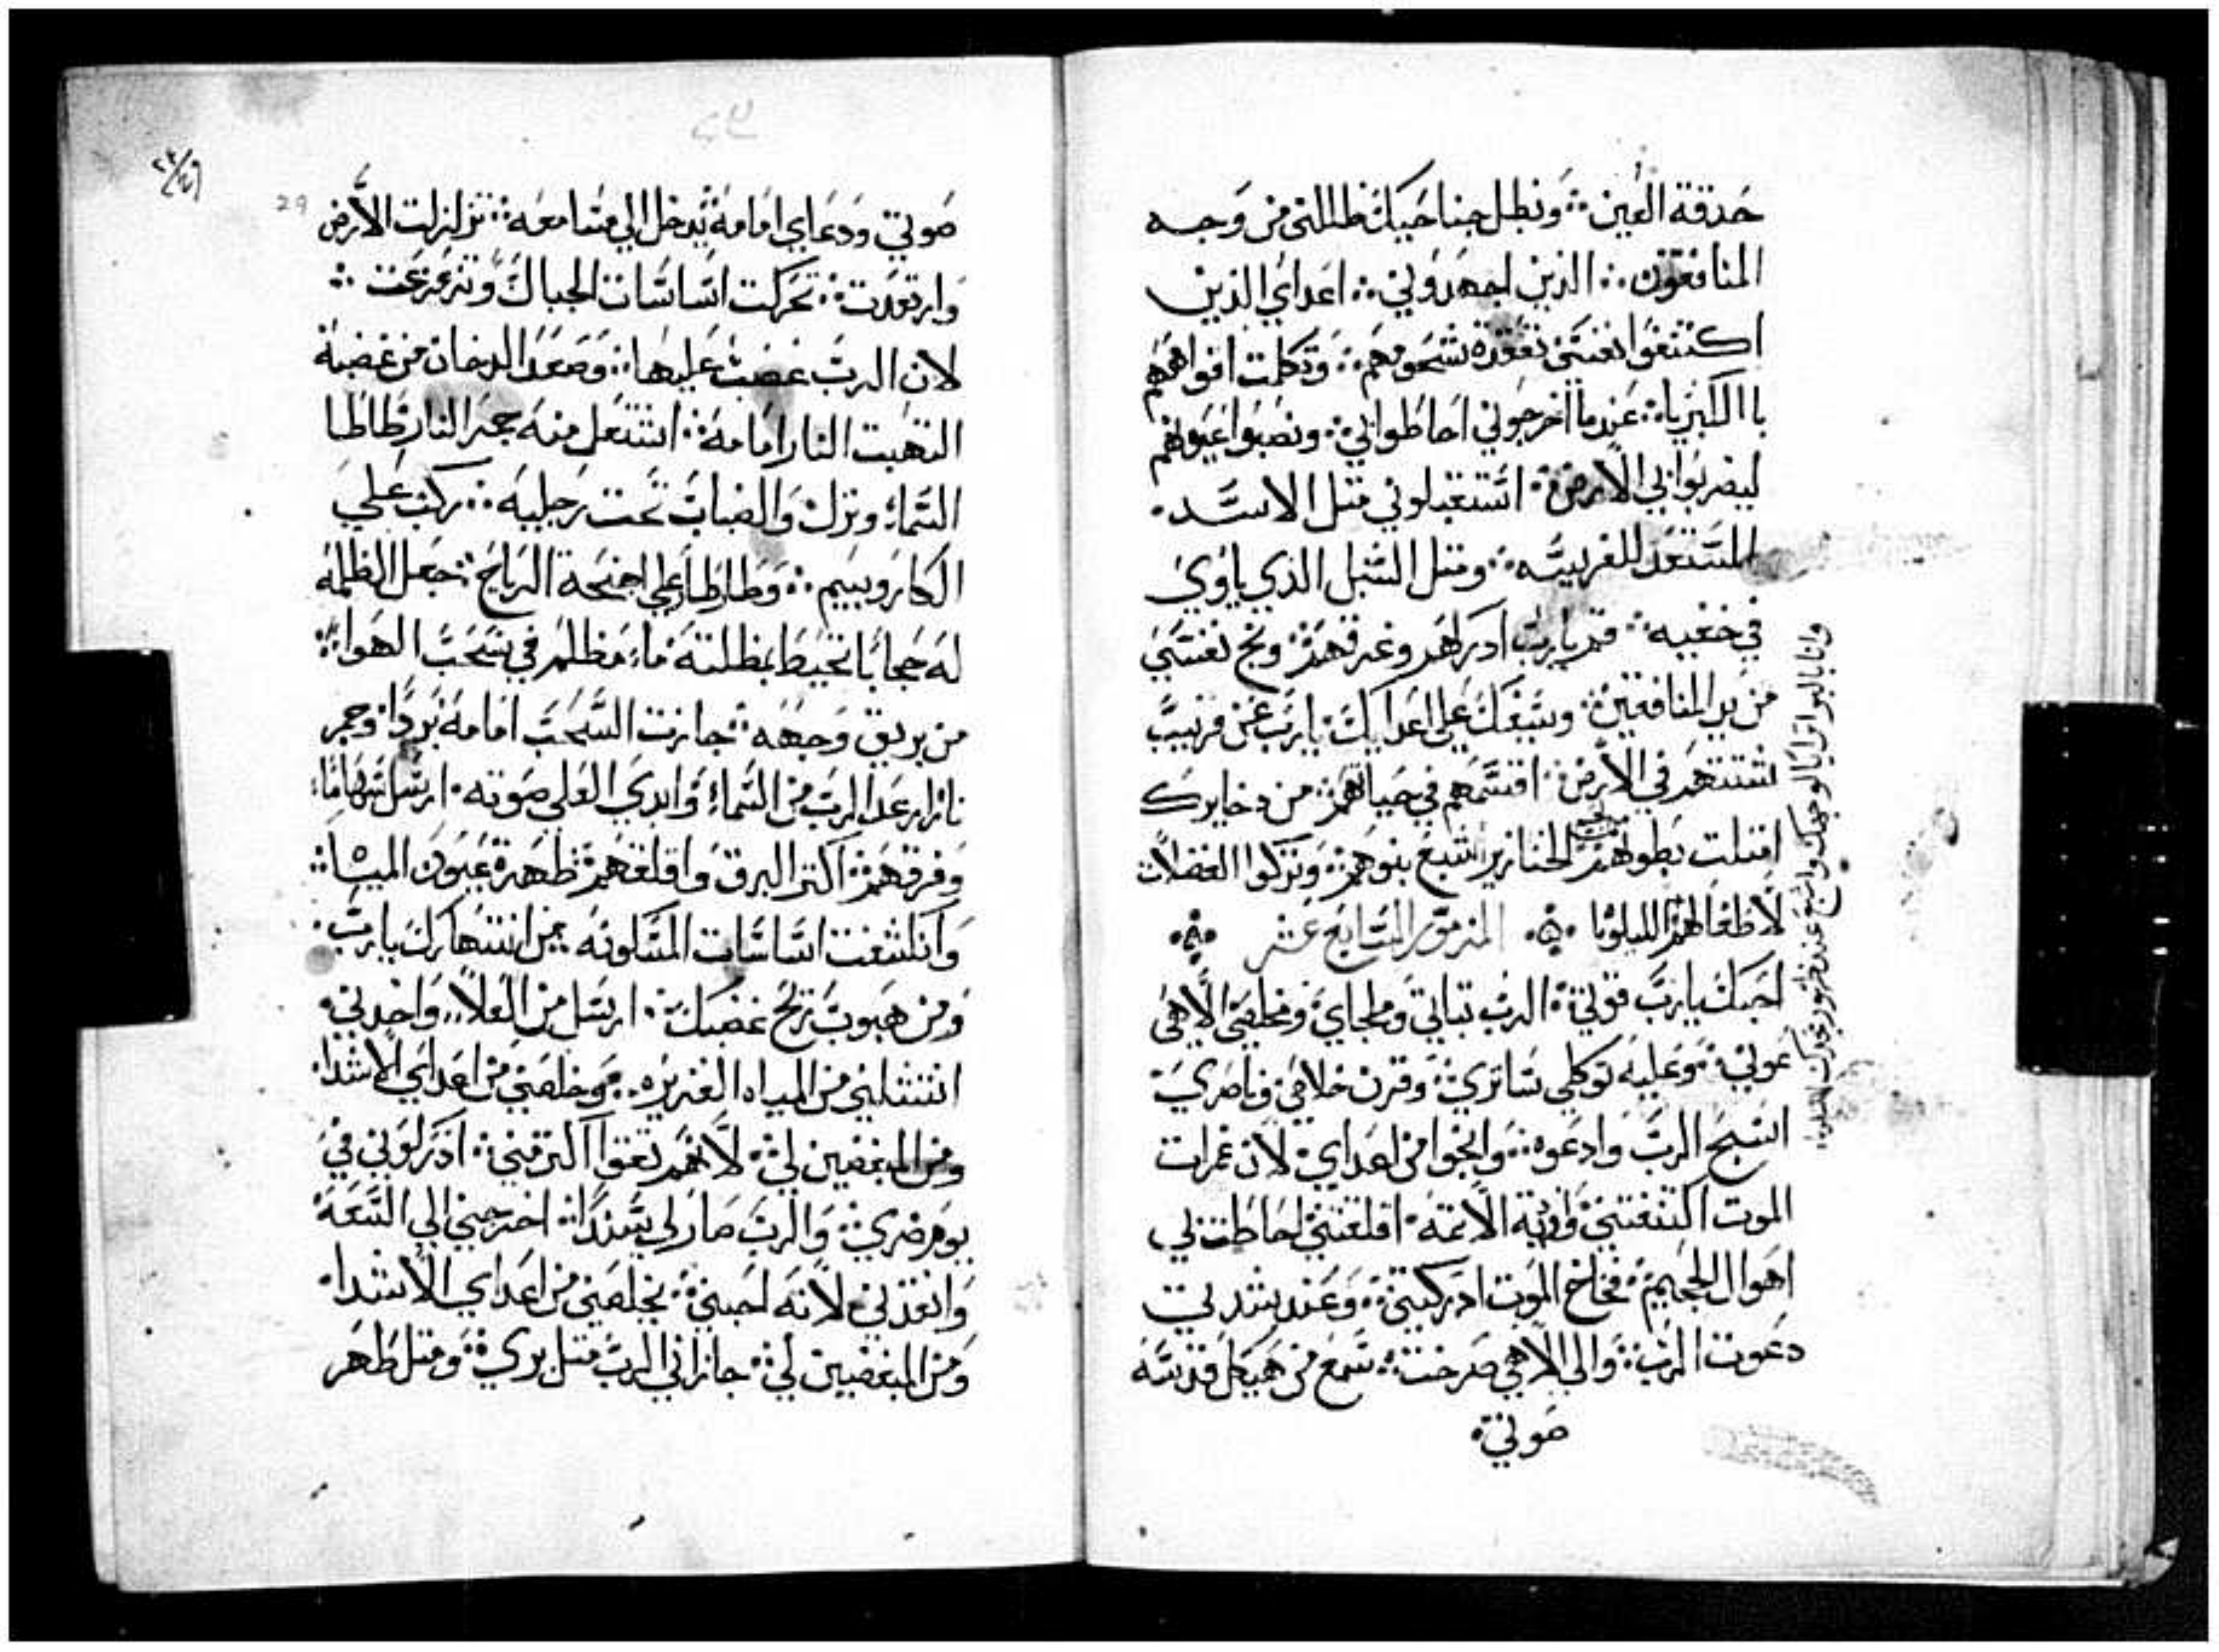 حدقة العين ؞ وبظل جناحيك ظللني من وجه
المنافقون ؞ الذين اجهدوني ؞ اعداي الذين
اكتنفوا نفسي تفقده شحومهم ؞ وتكلمت افواههم
با الكبريا ؞ عندما اخرجوني احاطوا بي ؞ ونصبوا عيونهم
ليضربوا بي الارض ؞ استقبلوني متل الاسد
المستعد للفريسه ؞ ومتل الشبل الذي ياوي
في خفيه ؞ قم يارب ادركهم وعرقهم ؞ ونج نفسي
من يد المنافقين ؞ وسيفك علي اعدايك ؞ يارب عن قريب
شتتهم في الارض ؞ اقسمهم في حياتهم ؞ من دخايرك
امتلت بطونهم لحم الخنازير اشبع بنوهم ؞ وتركوا الفضلات
لاطفالهم الليلويا ؞ المزمور السابع عشر ؞
احبك يارب قوتي ؞ الرب تباتي وملجاي ومخلصي الاهي
عوني ؞ وعليه توكلي ساتري ؞ وقرن خلاصي وناصري
اسبح الرب وادعوه ؞ وانجوا من اعداي ؞ لان غمرات
الموت اكتنفتني واودية الاتمه اقلقتني احاطت بي
اهوال الجحيم ؞ فخاخ الموت ادركتني ؞ وعند شدتي
دعوت الرب ؞ والي الاهي صرخت ؞ سمع من هيكل قدسه
صوتي ؞
وانا بالبر اترايا لوجهك واشبع عند ظهور مجدك
29
صوتي ودعاي امامه يدخل الي مسامعه ؞ تزلزلت الارض
وارتعدت ؞ تحركت اساسات الجبال وتزعزعت ؞
لان الرب غضب عليها ؞ وصعد الدخان من غضبه
التهبت النار امامه ؞ اشتعل منه جمر النار طاطا
السماء ونزل والضباب تحت رجليه ؞ ركب علي
الكاروبيم ؞ وطار طار علي اجنحة الرياح ؞ جعل الظلمه
له حجابا تحيط بمظلته ماء مظلم في سحب الهواء ؞
من بريق وجهه ؞ جازت السحب امامه بردا وجمر
نار ارعد الرب من السماء وابدي العلي صوته ؞ ارسل سهاما
وفرقهم ؞ اكتر البرق واقلقهم ؞ ظهرة عيون المياه ؞
وانكشفت اساسات المسكونه من انتهارك يارب ؞
ومن هبوب ريح غضبك ؞ ارسل من العلا واخدني ؞
انتشلني من المياه الغزيره ؞ وخلصني من اعداي الاشدا
ومن المبغضين لي ؞ لانهم تقوا اكتر مني ؞ ادركوني في
يوم ضري ؞ والرب صار لي سندا ؞ اخرجني الي السعه
وانقذني لانه احبني ؞ يخلصني من اعداي الاشدا
ومن المبغضين لي ؞ جازاني الرب متل بري ؞ ومتل طهر